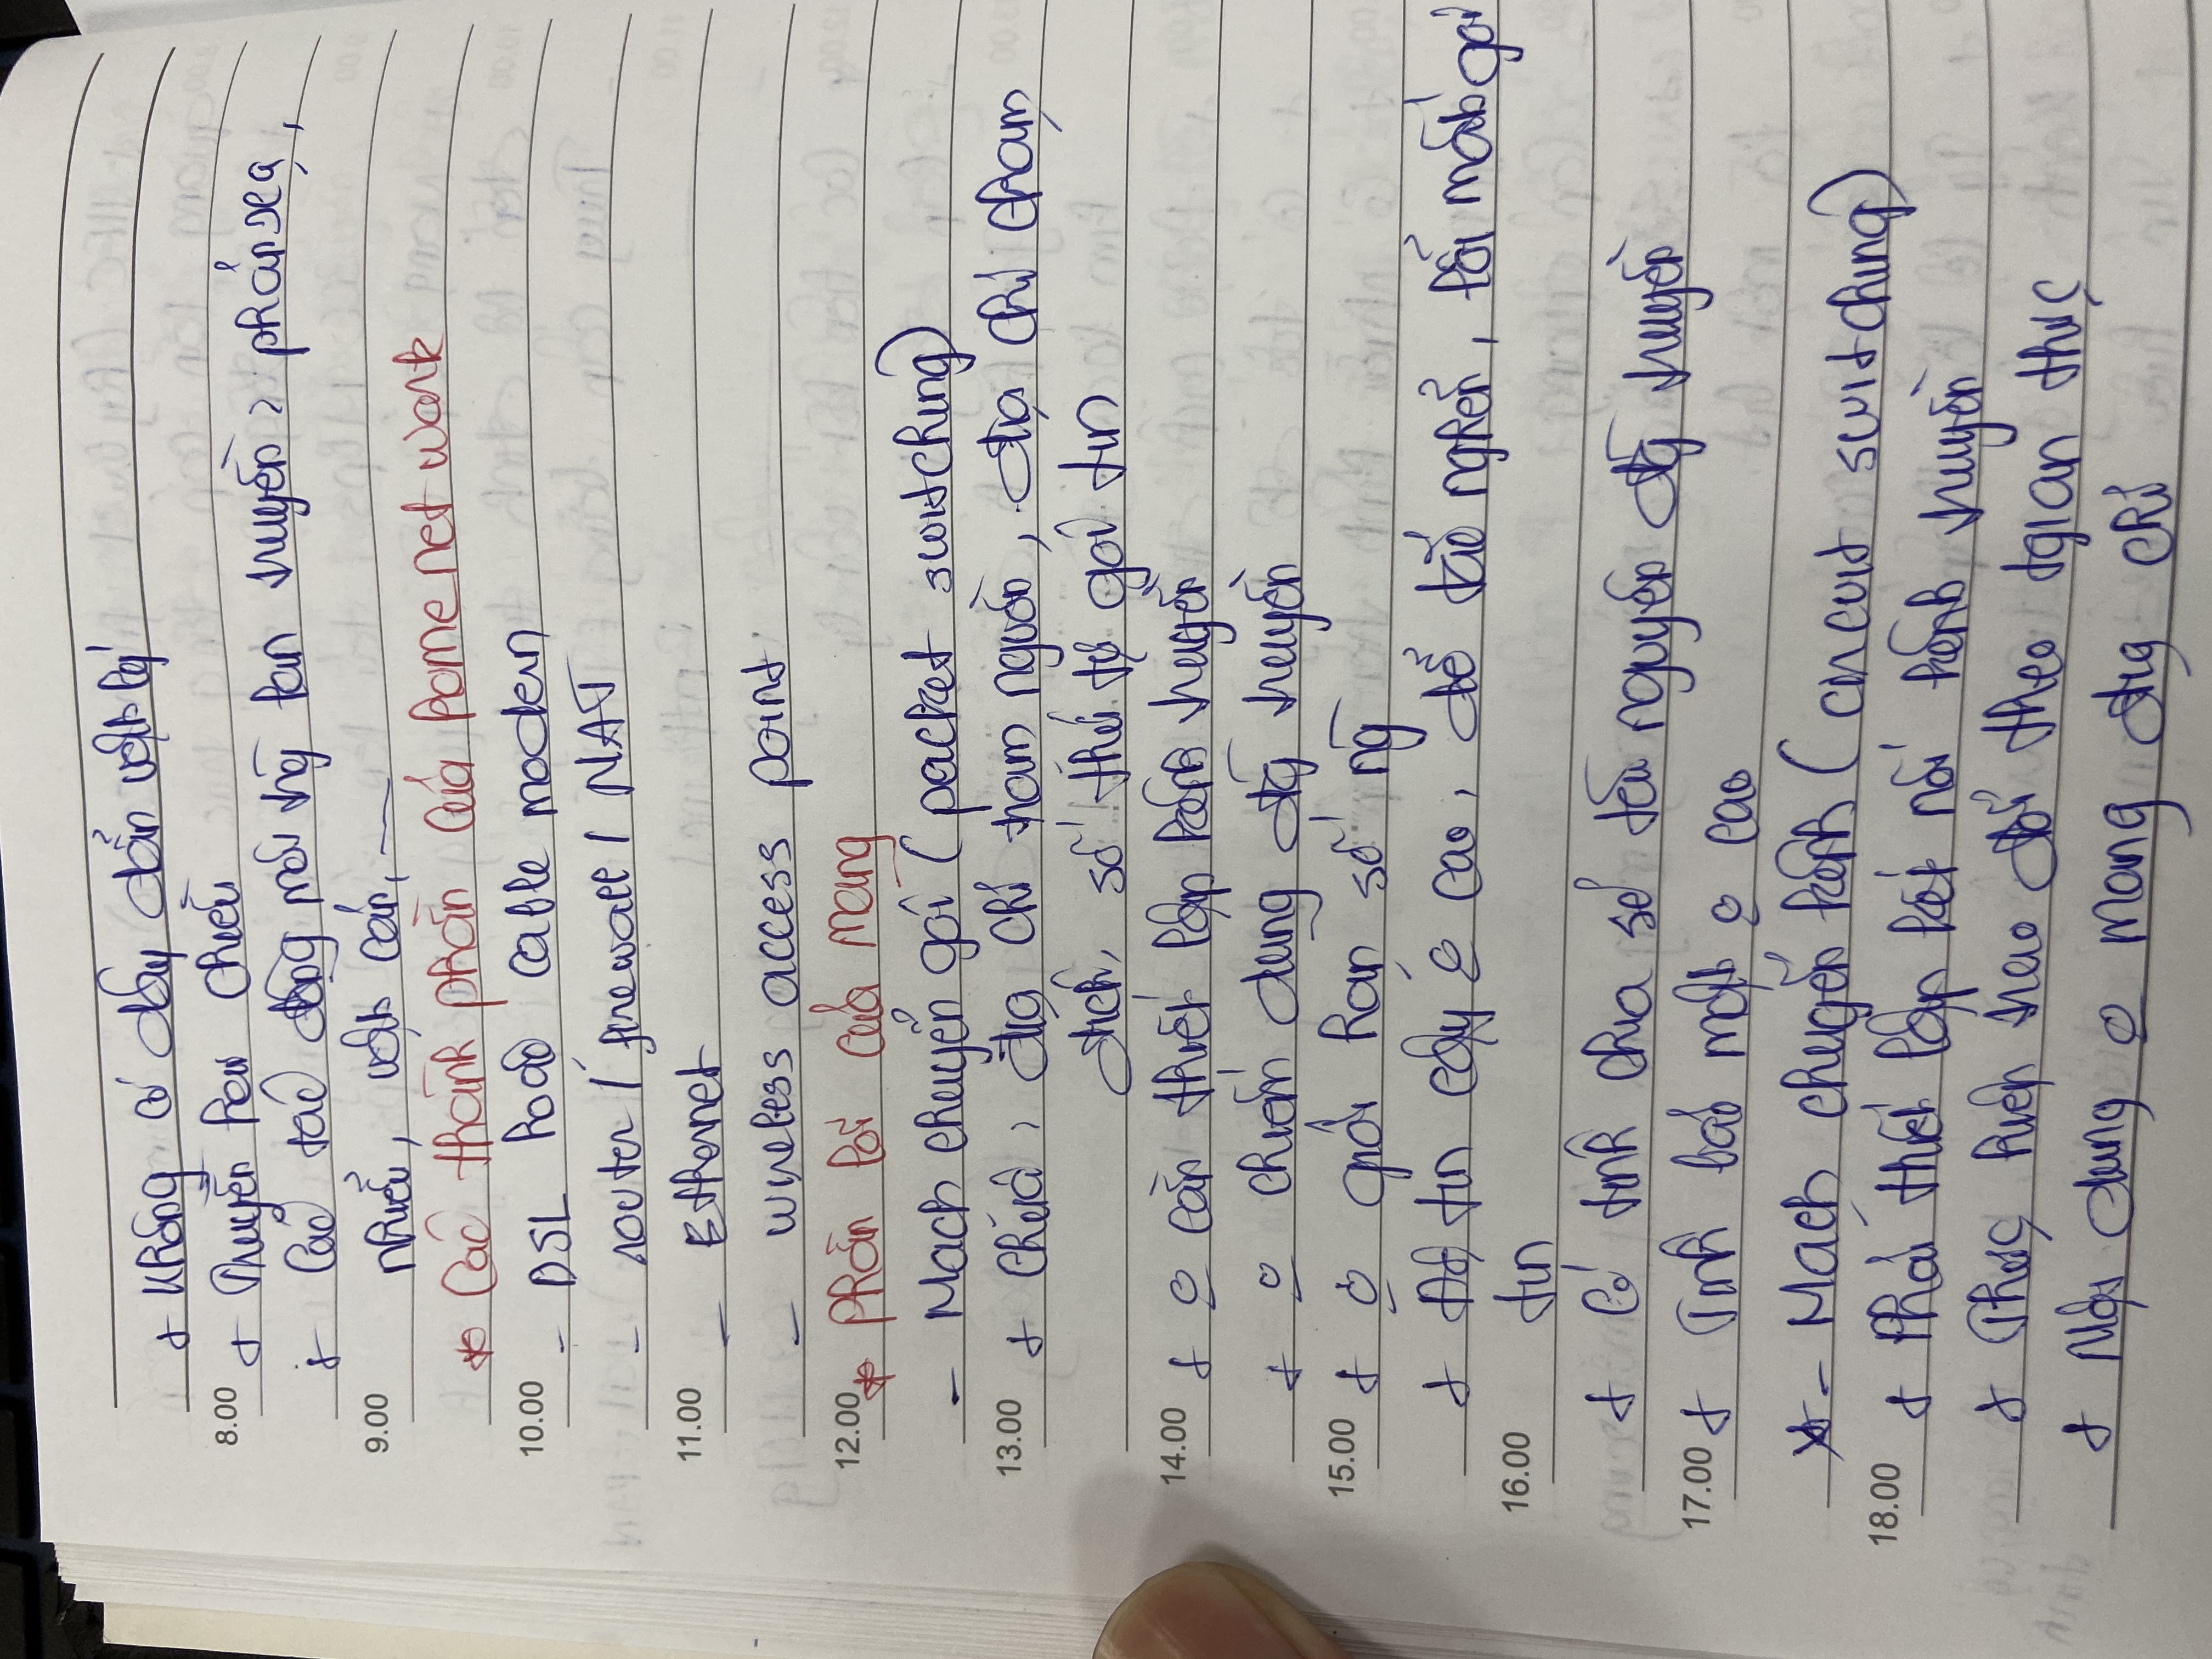 + Không có dây dẫn vật lý
8.00 + Truyền hai chiều
+ Các tác động môi trg lan truyền: phản xạ,
9.00 nhiễu, vật cản, —
* Các thành phần của home network
10.00 - DSL hoặc cable modem
- router / firewall / NAT
11.00 - Ethernet
- wireless access point
12.00 * Phần lõi của mạng
- Mạch chuyển gói (packet switching)
13.00 + Chứa: địa chỉ trạm nguồn, địa chỉ trạm
đích, số thứ tự gói tin
14.00 + o cần thiết lập kênh truyền
+ o chiếm dụng đg truyền
15.00 + o giới hạn số ng
+ Độ tin cậy o cao, dễ tắc nghẽn, lỗi mất gói
16.00 tin
+ Có tính chia sẻ tài nguyên đg truyền
17.00 + Tính bảo mật o cao
* - Mạch chuyển kênh (circuit switching)
18.00 + Phải thiết lập kết nối kênh truyền
+ Thực hiện trao đổi theo tgian thực
+ Nội dung o mang địa chỉ